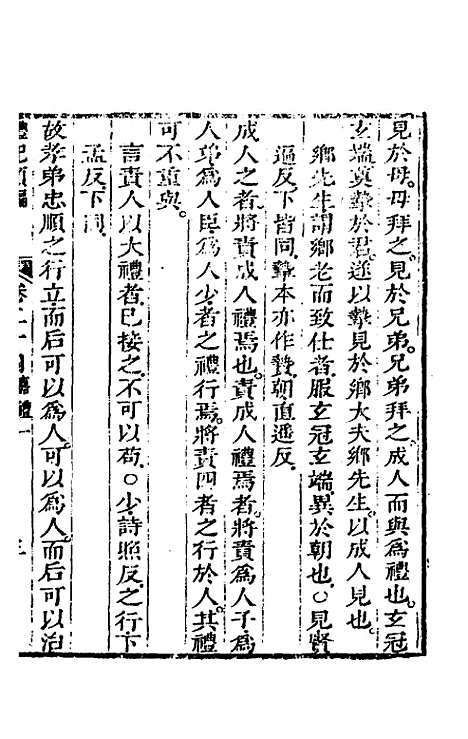 見於母。母拜之。見於兄弟。兄弟拜之。成人而與為禮也。玄冠
玄端奠摯於君。遂以摯見於鄉大夫鄉先生。以成人見也。
鄉先生謂鄉老而致仕者。服玄冠玄端異於朝也。○見賢
遍反。下皆同。摯本亦作贄。朝直遙反。
成人之者。將責成人禮焉也。責成人禮焉者。將責為人子。為
人弟。為人臣。為人少者之禮行焉。將責四者之行於人。其禮
可不重與。
言責人以大禮者。已接之。不可以苟。○少詩照反。之行下
孟反。下同。
故孝弟忠順之行立。而后可以為人。可以為人。而后可以治
卷二十
禮一